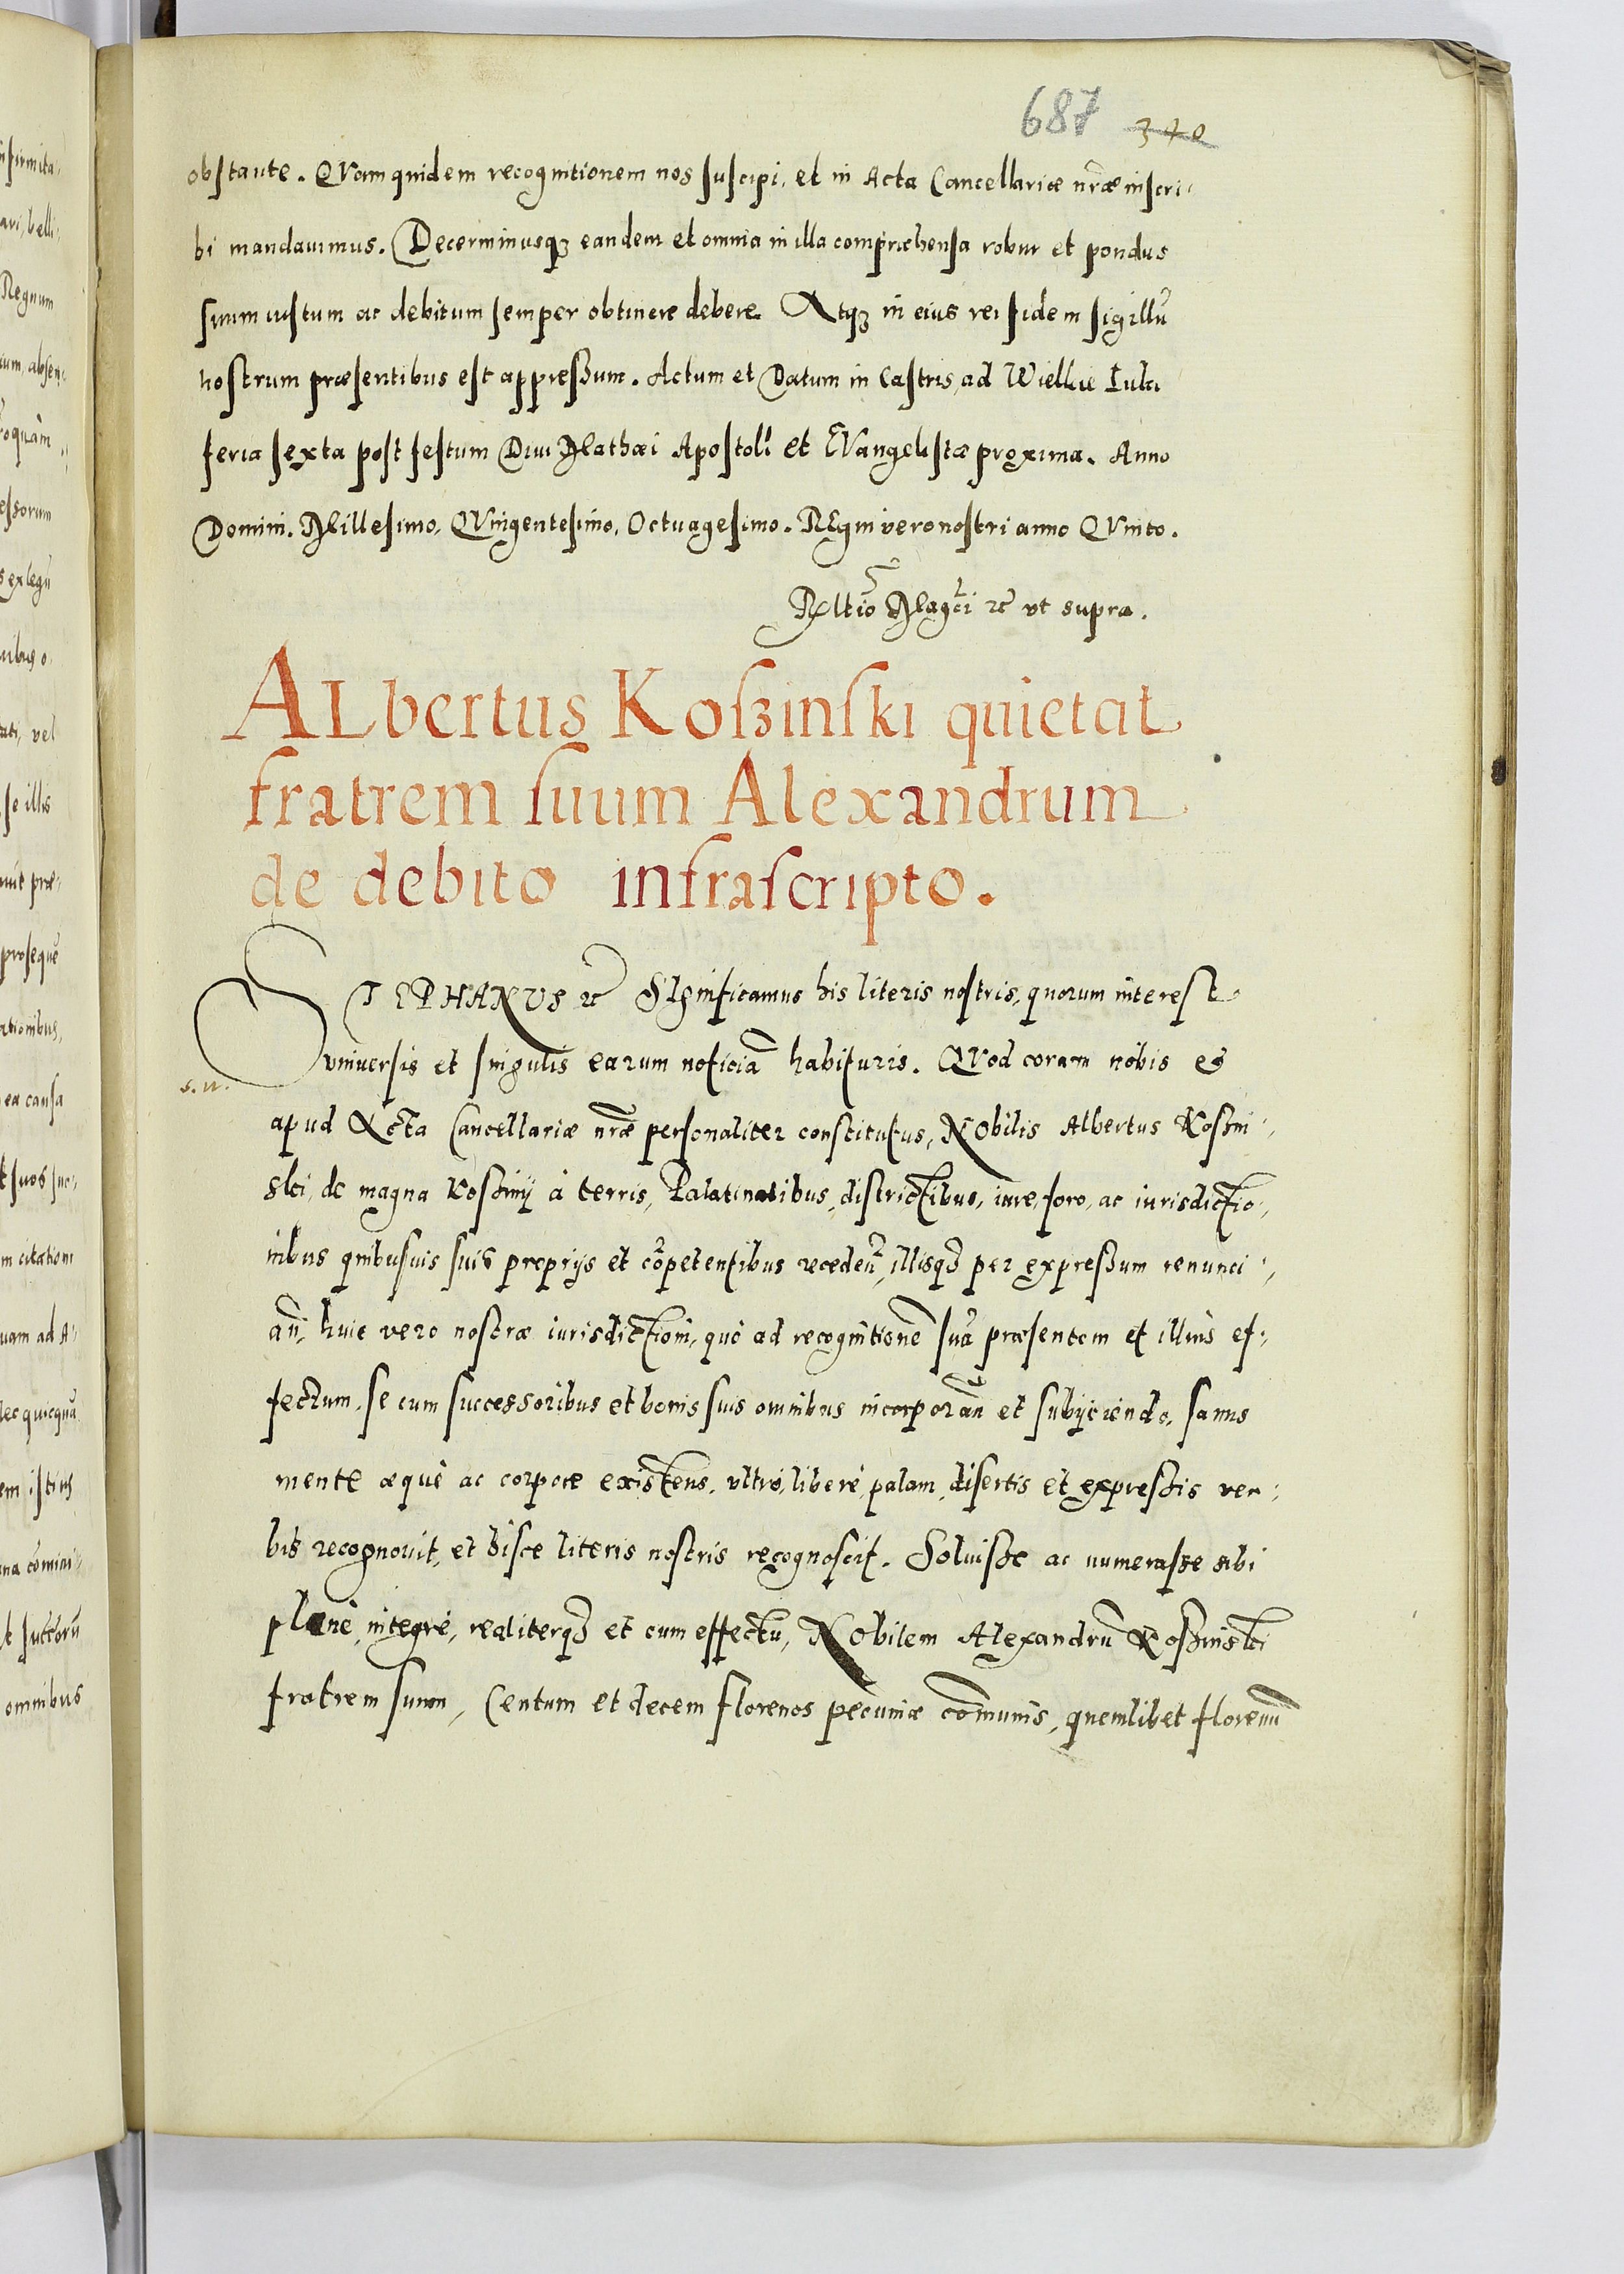 687 340
obstante. QVam quidem recognitionem nos suscipi, et in Acta Cancellariæ nr̃æ inscri-
bi mandauimus. Decerminusqꝫ eandem et omnia in illa comprehensa robur et pondus
suum iustum ac debitum semper obtinere debere. Atqꝫ in eius rei fidem sigillũ
nostrum præsentibus est appressum. Actum et Datum in Castris ad Wielkie Luki
feria sexta post festum Diui Mathæi Apostoli et EVangelistæ proxima. Anno
Domini. Millesimo, QVingentesimo, Octuagesimo. REgni vero nostri anno QVinto.
REltiõ Magcĩ ꝛc vt supra.
ALbertus Koszinski quietat
fratrem suum Alexandrum
de debito infrascripto.
STEPHANVS ꝛc SIgnificamus his literis nostris, quorum interest
vniuersis et singulis earum noticiã habituris. QVod coram nobis et
s. n.
apud Acta Cancellariæ nr̃æ personaliter constitutus, NObilis Albertus Koszin-
ski, de magna Kosziny à terris, Palatinatibus, districtibus, iure, foro, ac iurisdictio-
nibus quibusuis suis proprijs et cõpetentibus recedeñ, illisqꝫ per expressum renunci-
añ, huic vero nostræ iurisdictioni, quò ad recognitionẽ suã præsentem et illius ef-
fectum, se cum successoribus et bonis suis omnibus incorporañ et subijciendo, sanus
mente æquè ac corpore existens, vltrò, liberè, palam, disertis et expressis ver-
bis recognouit, et hisce literis nostris recognoscit. Soluisse ac numerasse sibi
planè, integrè, realiterqꝫ et cum effectu, NObilem Alexandrũ Koszinski
fratrem suum, Centum et decem florenos pecuniæ cõmunis, quemlibet florenũ